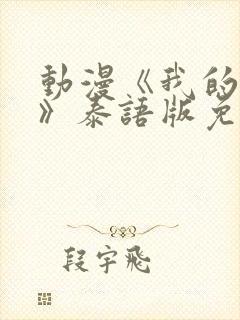 動漫《我的
》泰語版免
段宇飛